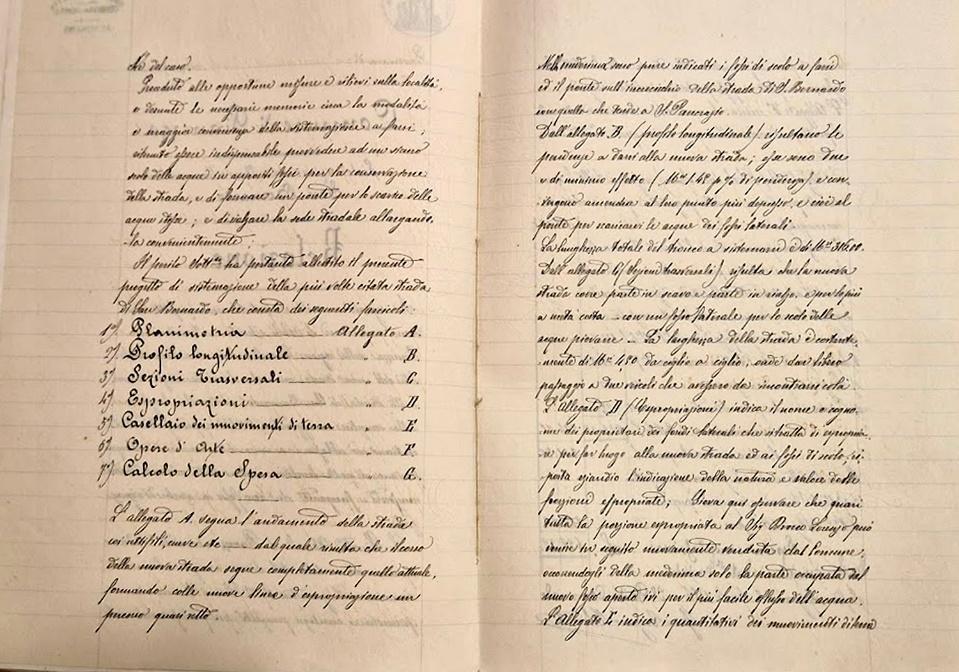 del caso.
Proceduto alle opportune misure e rilievi sulla località
e desunte le necessarie memorie circa la modalità
e maggior convenienza della sistemazione a farsi;
ritenuto essere indispensabile provvedere ad un
scolo delle acque in appositi fossi per la conservazione
della strada, e di formare un ponte per lo scarico delle
acque stesse; e di the sede stradale allargando
la convenientemente;
Il perito Sott.to ha pertanto allestito il presente
progetto di sistemazione della più volte citata strada
di San Bernardo, che consta dei seguenti fascicoli:
1°) Planimetria Allegato A.
2°) Profilo longitudinale " B.
3°) Sezioni Trasversali " C.
4°) Espropriazioni " D.
5°) Casellaio dei muovimenti di terra " E.
6°) Opere d'Arte " F.
7°) Calcolo della Spesa " G.
L'allegato A. segna l'andamento della strada
coi rettifili, curve etc dal quale risulta che il corso
della nuova strada segue completamente quello attuale,
formando colle nuove linee d'espropriazione un
quasi retto.
Nella medesima sono pure indicati i fossi di scolo a farsi
ed il ponte sull'incrocicchio della strada di S. Bernardo
con quella che tende a S. Pancrazio.
Dall'allegato B. (profilo longitudinale) risultano le
pendenze a darsi alla nuova strada; esse sono due
e di minimo effetto ( p % di pendenza) e con-
vergono amendue al suo punto più depresso, e cioè al
ponte per scaricare le acque dei fossi laterali.
La lunghezza totale del tronco a sistemarsi è di
Dall'allegato C (Sezioni trasversali) risulta che la nuova
strada corre parte in scavo e parte in rialzo, e per lo più
a metà costa – con un fosso laterale per lo scolo delle
acque piovane. – La larghezza della strada è costante-
mente di 4,80 da ciglio a ciglio, onde dar libero
passaggio a due veicoli che avessero da incontrarsi colà.
L'Allegato D (Espropriazione) indica il nome e cogno-
me dei proprietari dei fondi laterali che si tratta di espropria-
re per far luogo alla nuova strada ed ai fossi di scolo, ri-
porta eziandio l'indicazione della natura e valore delle
porzioni espropriate; Giova qui osservare che quasi
tutta la porzione espropriata al Sig. Lorenzo può
venire in seguito nuovamente venduta dal Comune,
occorrendogli della medesima solo la parte occupata dal
nuovo fosso aperto ivi per il più facile efflusso dell'acqua.
L'Allegato E indica i quantitativi dei muovimenti di terra